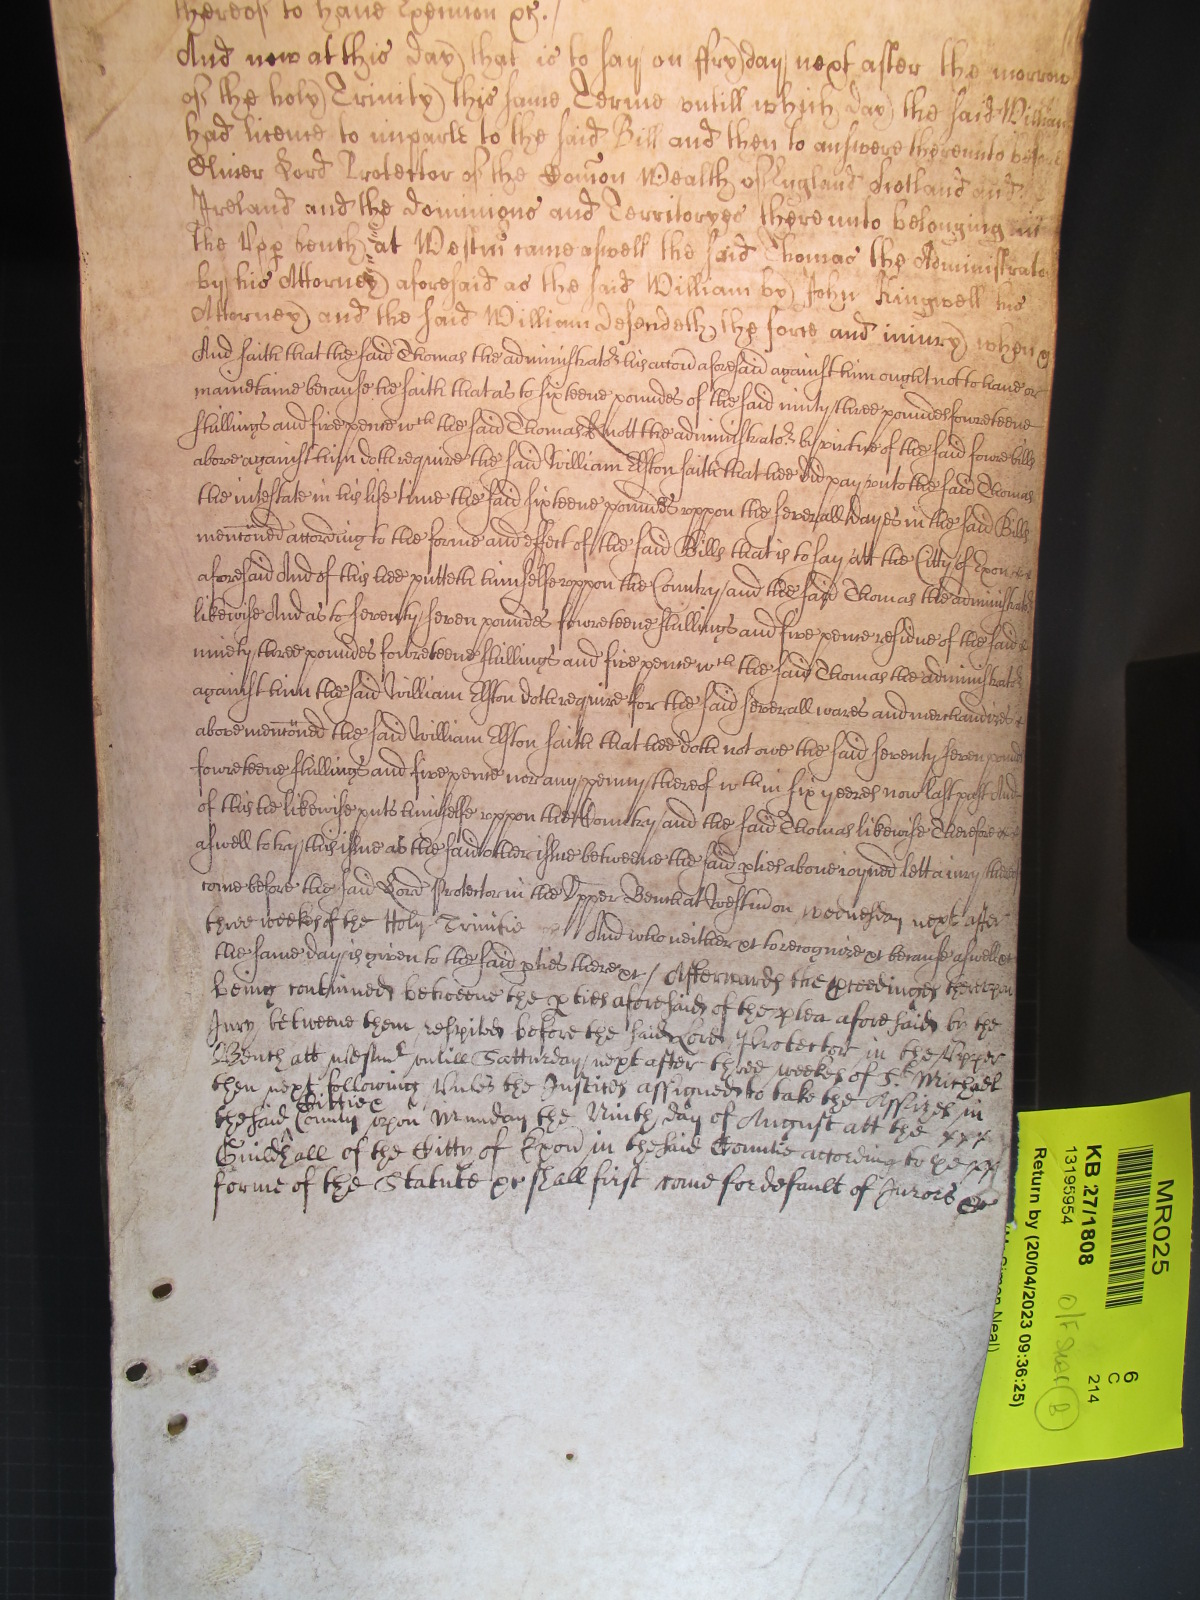 thereof to have Execucion &c./
And now at this day that is to say on ffryday next after the morrow
of the holy Trinity this same Terme untill which day the said William
had licence to imparle to the said Bill and then to answere thereunto before
Oliver Lord Protector of the Comon Wealth of England Scotland and
Ireland and the dominions and Territoryes thereunto belonging in
the Upp bench at Westm came aswell the said Thomas the Administrator
by his Attorney aforesaid as the said William by John Kingwell his
Attorney and the said William defendeth the force and iniury when &
And saith that the said Thomas the administrator his accon aforesaid against him ought not to have or
maintaine because he saith that as to sixteene poundes of the said ninty three poundes fowreteene
shillings and five pence wch the said Thomas Knott the administrator by virtue of the said fowre bills
above against him doth require the said William Elston saith that hee did pay unto the said Thomas
the intestate in his life time the said sixteene poundes uppon the severall dayes in the said Bills
menconed according to the forme and effect of the said Bills that is to say att the Citty of Exon
aforesaid And of this hee putteth himselfe uppon the Country and the said Thomas the administrator
likewise And as to seventy seven poundes fowreteene shillings and five pence residue of the said
ninety three poundes fowreteene shillings and five pence wch the said Thomas the administrator
against him the said William Elston doth require for the said severall wares and merchandizes
above menconed the said William Elston saith that hee doth not owe the said seventy seven pounds
fowreteene shillings and five pence nor any penny thereof wthin six yeeres now last past And
of this he likewise puts himselfe uppon the Country and the said Thomas likewise Therefore
aswell to try this issue as the said other issue betweene the said pties above ioyned lett a iury thereof
come before the said Lord Protector in the Upper Bench at Westm on wednesday next after
three weekes of the Holy Trinitie And who neither &c to recognize &c because aswell &c
the same day is given to the said pties there &c / Afterwards the pceedinges thereupon
being continued betweene the pties aforesaid of the plea aforesaid by the
Jury betweene them respited before the said Lord Protector in the Upper
Bench att Westmr untill Satturday next after three weekes of St Michael
then next following unles the Justices assigned to take the Assizes in
Citties
the said County upon Munday the Ninth day of August att the xxx
Guildhall of the Citty of Exon in the said Countie according to ye xx
forme of the Statute &c shall first come for default of Jurors &c
MR025
KB 27/1808
13195954
6
C
214
Return by (20/04/2023 09:36:25)
Simon Neal)